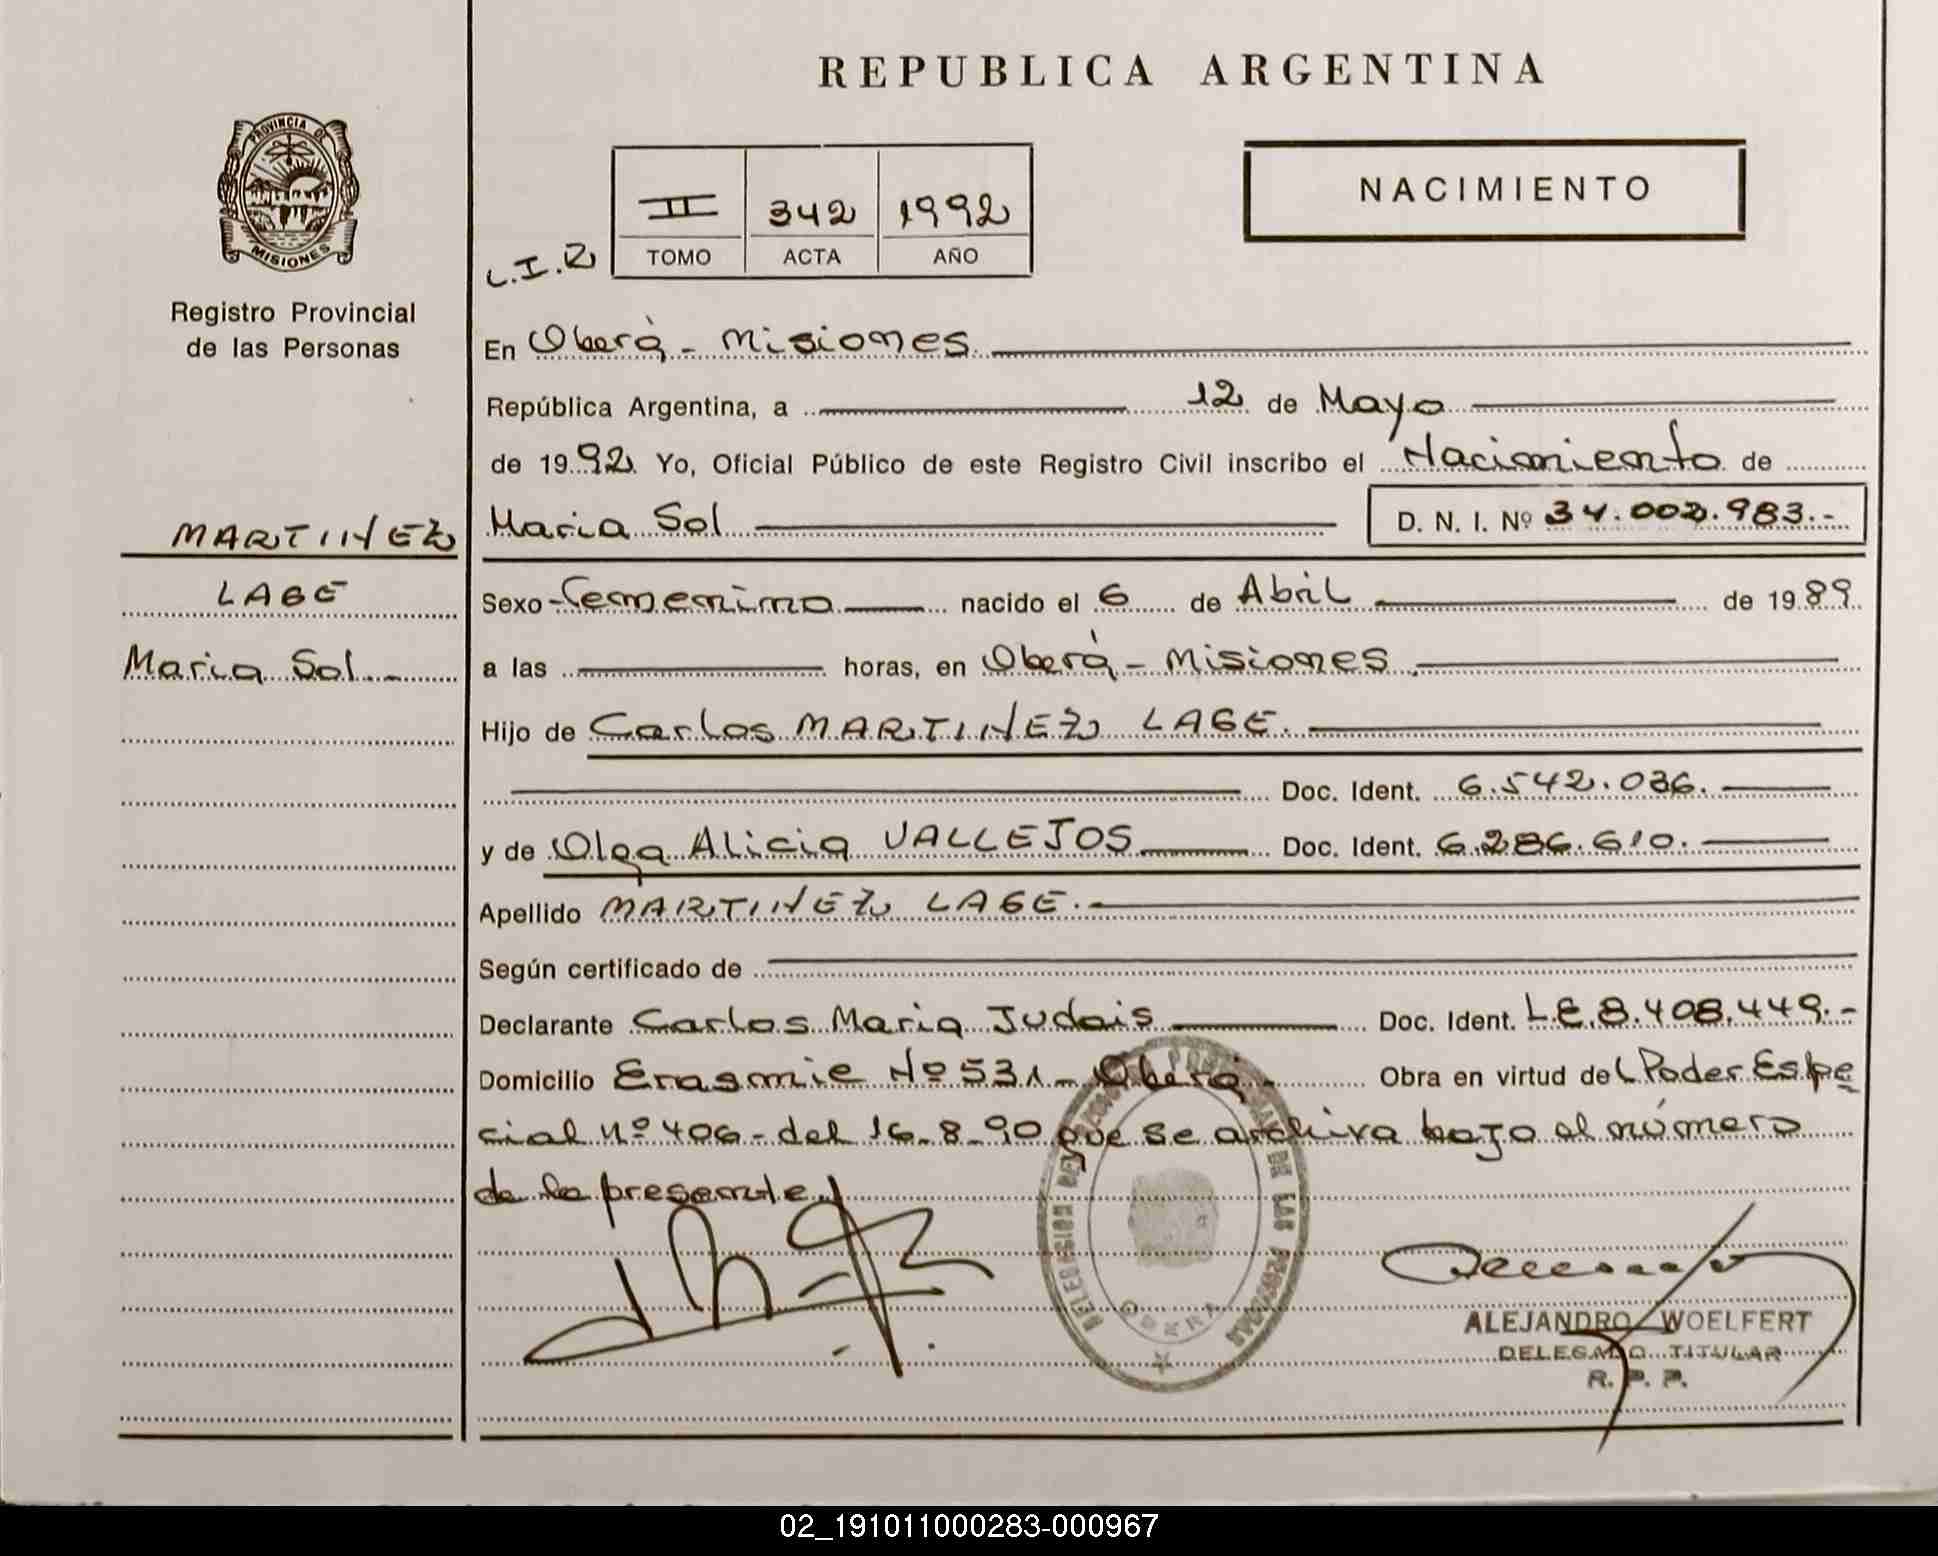 REPUBLICA ARGENTINA
PROVINCIA DE
MISIONES
Registro Provincial
de las Personas
NACIMIENTO
L.I.R
II 342 1992
TOMO ACTA AÑO
En Oberá - Misiones
República Argentina, a 12 de Mayo
de 1992. Yo, Oficial Público de este Registro Civil inscribo el Nacimiento de
Maria Sol D. N. I. Nº 34.002.983.-
MARTINEZ
LAGE
Maria Sol.-
Sexo Femenino nacido el 6 de Abril de 1989
a las horas, en Oberá - Misiones
Hijo de Carlos MARTINEZ LAGE.
Doc. Ident. 6.542.036.
y de Olga Alicia VALLEJOS Doc. Ident. 6.286.610.
Apellido MARTINEZ LAGE.
Según certificado de
Declarante Carlos Maria Judais Doc. Ident. L.E. 8.408.449.-
Domicilio Erasmie Nº 531 - Oberá - Obra en virtud del Poder Espe
cial nº 406 - del 16-8-90 que se archiva bajo el número
de la presente
DELEGACION DEL REGISTRO PROVINCIAL DE LAS PERSONAS
OBERA
ALEJANDRO WOELFERT
DELEGADO TITULAR
R. P. P.
02_191011000283-000967